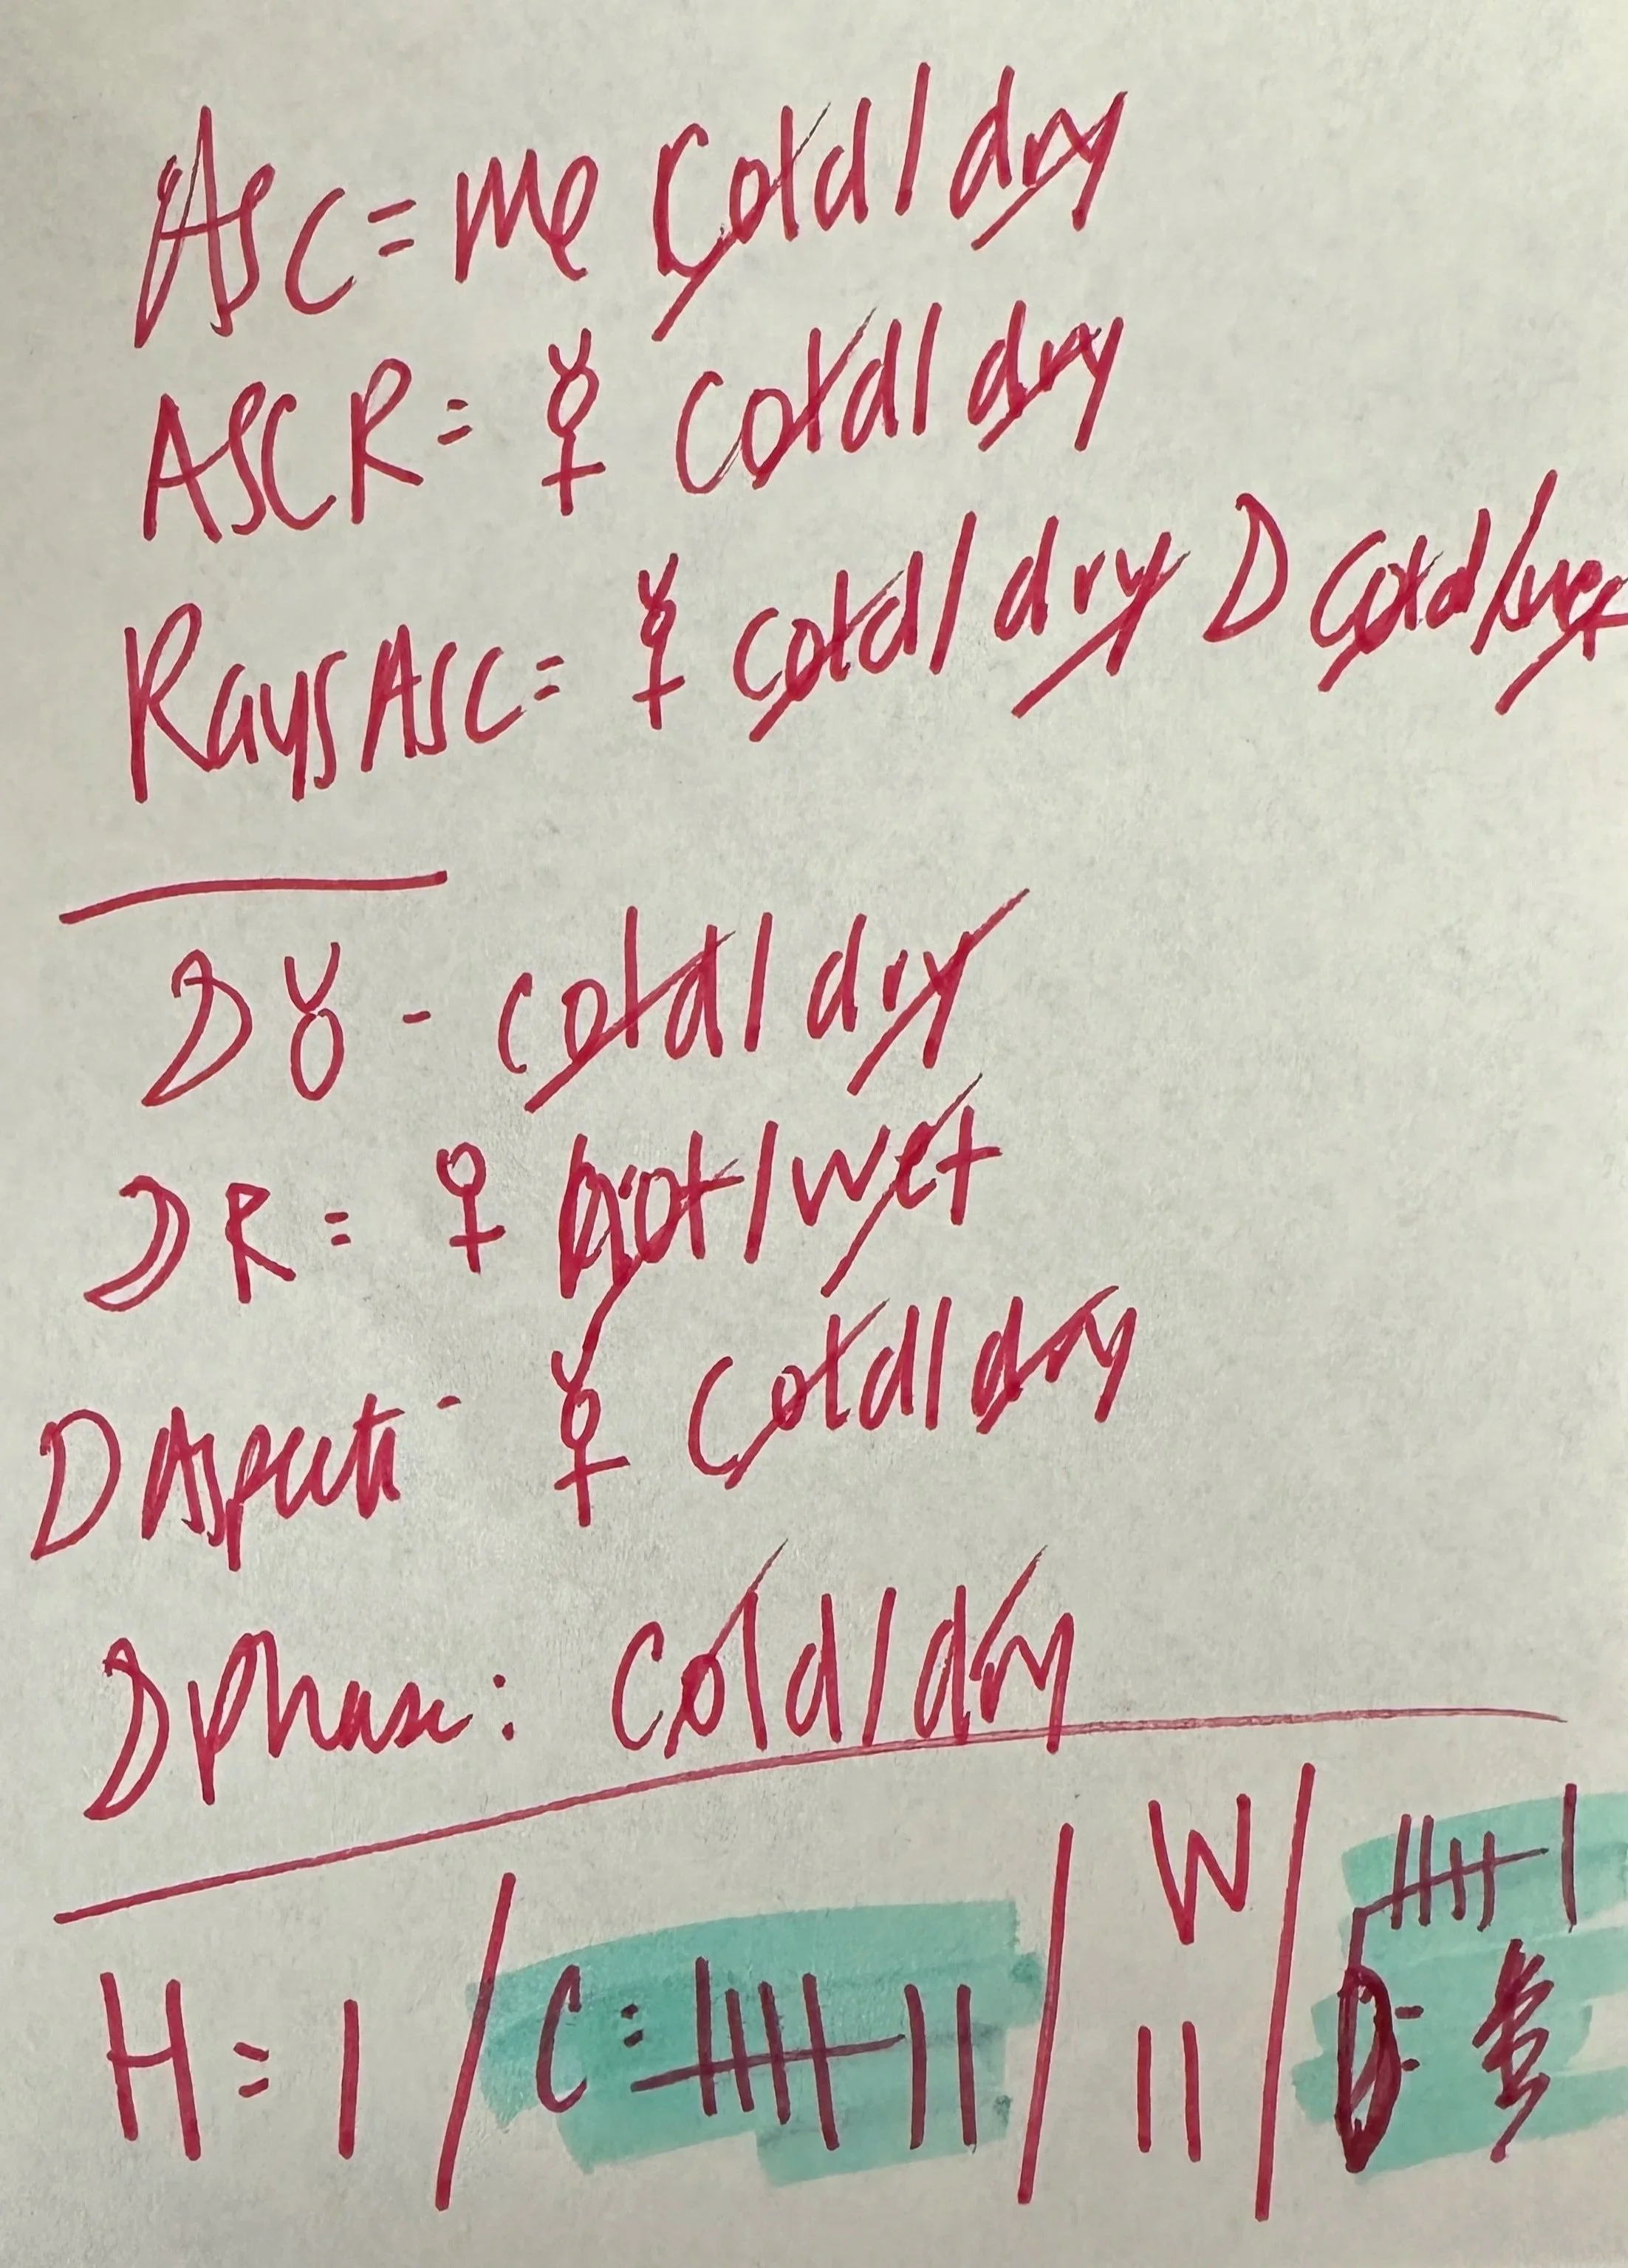 Asc = me Cold/dry
ASC R = ☿ cold/dry
Rays Asc = ☿ cold/dry ☽ Cold/wet
☽ ♉ - cold/dry
☽ R = ♀ hot/wet
☽ Aspects - ☿ Cold/dry
☽ Phase: Cold/dry
H = | / C: |||| || / W || / D: |||| |